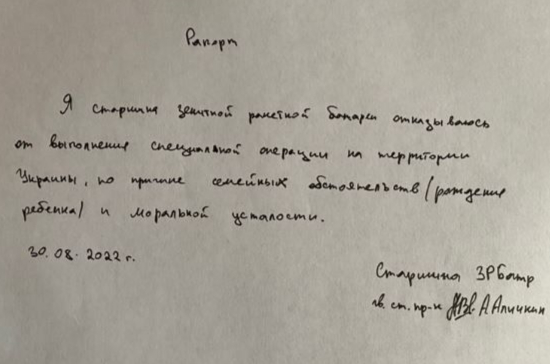 Рапорт
Я старшина зенитной ракетной батареи отказываюсь
от выполнения специальной операции на территории
Украины, по причине семейных обстоятельств (рождение
ребенка) и моральной усталости.
30.08.2022 г.
Старшина ЗРБатр
гв. ст. пр-к А Аличкин